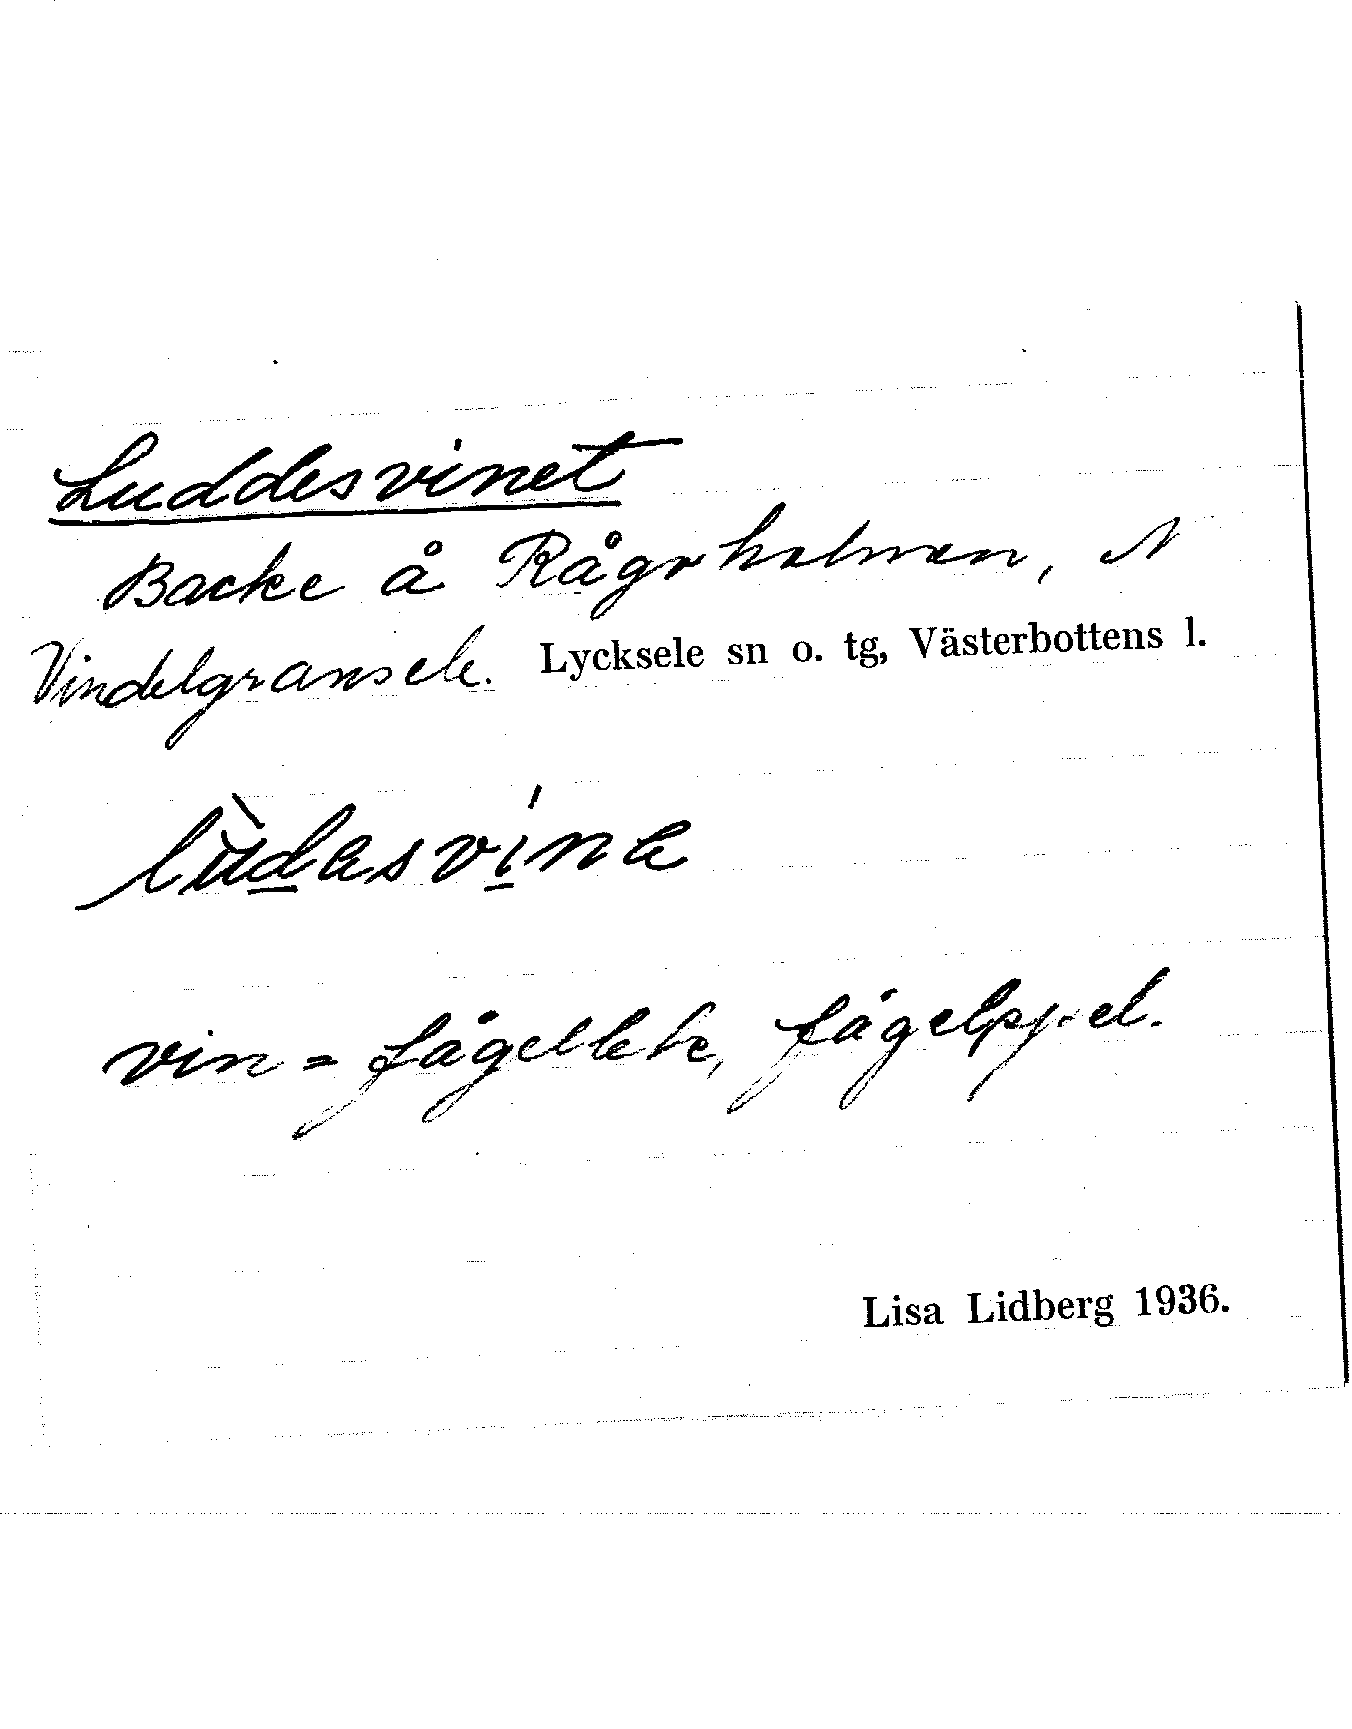 Luddesvinet
Backe å Rågoholmen, N
Vindelgransele. Lycksele sn o. tg, Västerbottens l.
lùdesvíne
vin = fågellek, fågelspel.
Lisa Lidberg 1936.